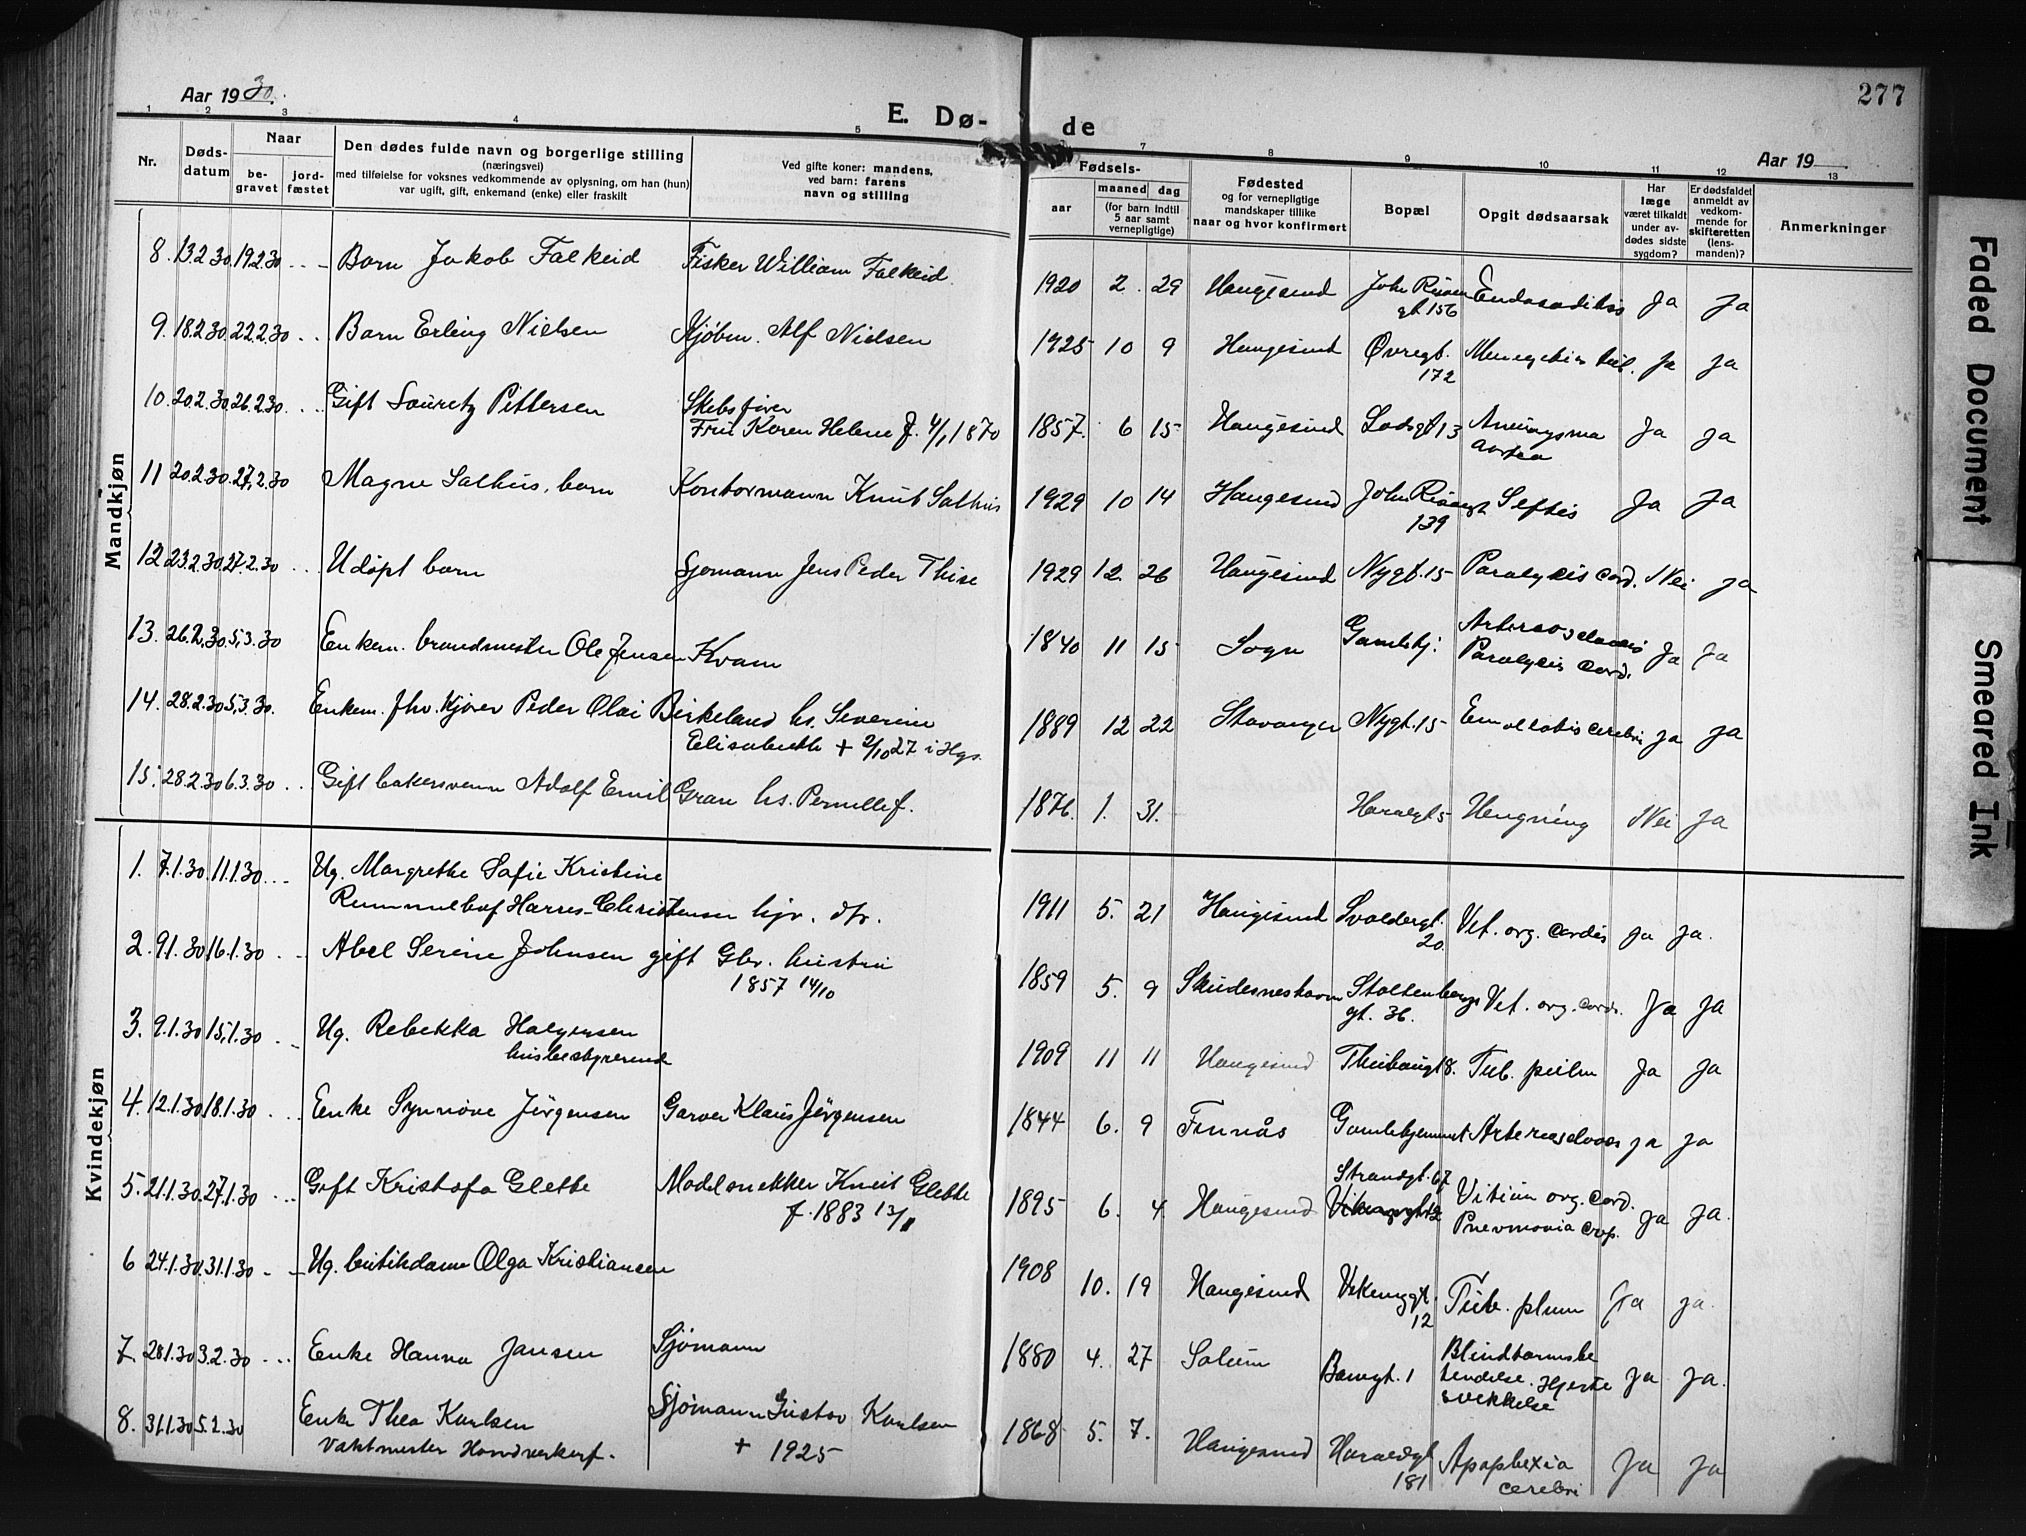 Aar 1930.
E. Dø-
de
277
Aar 19
1 2 3 4 5 7 8 9 10 11 12 13
Nr.
Døds-
datum
Naar
be-
gravet
jord-
fæstet
Den dødes fulde navn og borgerlige stilling
(næringsvei)
med tilføielse for voksnes vedkommende av oplysning, om han (hun)
var ugift, gift, enkemand (enke) eller fraskilt
Ved gifte koner: mandens,
ved barn: farens
navn og stilling
Fødsels-
aar
maaned
dag
(for barn indtil
5 aar samt
vernepligtige)
Fødested
og for vernepligtige
mandskaper tillike
naar og hvor konfirmert
Bopæl
Opgit dødsaarsak
Har
læge
været tilkaldt
under av-
dødes sidste
sygdom?
Er dødsfaldet
anmeldt av
vedkom-
mende for
skifteretten
(lens-
manden)?
Anmerkninger
Mandkjøn
8. 13.2.30. 19.2.30 Barn Jakob Falkeid Fisker William Falkeid. 1920 2. 29 Haugesund
gt. 156 Ja Ja
9. 18.2.30. 22.2.30 Barn Erling Nielsen Kjøbm. Alf Nielsen 1925 10 9 Haugesund Øvregt.
172 Ja Ja
10. 20.2.30. 26.2.30. Gift Lauretz Pettersen Skibsfører
Fru Karen Helene f. 4/1 1870 1857. 6 15 Haugesund 13 Aneurysma
aortea Ja Ja
11 20.2.30. 27.2.30 Magne Salhus, barn Kontormann Knut Salhus 1929 10 14 Haugesund
139 Ja Ja
12 23.2.30. 27.2.30 Udøpt barn Sjømann Jens Peder Thise 1929 12. 26 Haugesund Nygt. 15 Paralysis cord. Nei Ja
13. 26.2.30. 5.3.30 Enkem. brandmester Ole Jensen Kvam 1840 11 15 Sogn Gamlehj.
Paralysis cord. Ja Ja
14. 28.2.30 5.3.30. Enkem. fhv. kjører Peder Olai Birkeland hs. Severine
Elisabeth + 2/10 27 i Hgs. 1889 12 22 Stavanger Nygt. 15 cerebri Ja Ja
15. 28.2.30 6.3.30 Gift bakersvenn Adolf Emil Gran hs. Pernille f. 1876. 1. 31. Haraldgt 5 Hengning Nei Ja
Kvindekjøn
1. 7.1.30. 11.1.30 Ug. Margrethe Sofie Kristine
Rummelhof Harres-Christensen hjv. dtr. 1911 5. 21 Haugesund Svoldergt.
20. Vit. org. cordis Ja Ja.
2. 9.1.30 16.1.30 Abel Serine Johnsen gift Gbr. hustru
1857 14/10 1859 5. 9 Skudesneshavn Stoltenbergs
gt. 36. Vit. org. cord. Ja Ja
3. 9.1.30 15.1.30 Ug. Rebekka
husbestyrerinde 1909 11 11 Haugesund 18. Tub. pulm Ja Ja
4. 12.1.30 18.1.30 Enke Synnøve Jørgensen Garver Klaus Jørgensen 1844 6. 9 Finnås Gamlehjemmet Ja Ja
5. 21.1.30. 27.1.30 Gift Kristofa Glette Modelsnekker Knut Glette
f. 1883 13/11 1895 6. 4 Haugesund Strandgt. 67
Vikinggt 12 Vitium org. cord.
Pnevmonia crop. Ja Ja.
6 24.1.30. 31.1.30 Ug. butikdame Olga Kristiansen 1908 10. 19 Haugesund Vikinggt.
12 Tub. plum Ja Ja.
7. 28.1.30 3.2.30 Enke Hanna Jansen Sjømann 1880 4. 27 Solum 1 Blindtarmsbe
tendelse. Hjerte
svekkelse Ja Ja.
8. 31.1.30 5.2.30 Enke Thea Karlsen
Vaktmester Haandverkerf. Sjømann Gustav Karlsen
+ 1925 1868 5. 7. Haugesund Haraldsgt
181 Apoplexia
cerebri Ja Ja
Faded Document
Smeared Ink